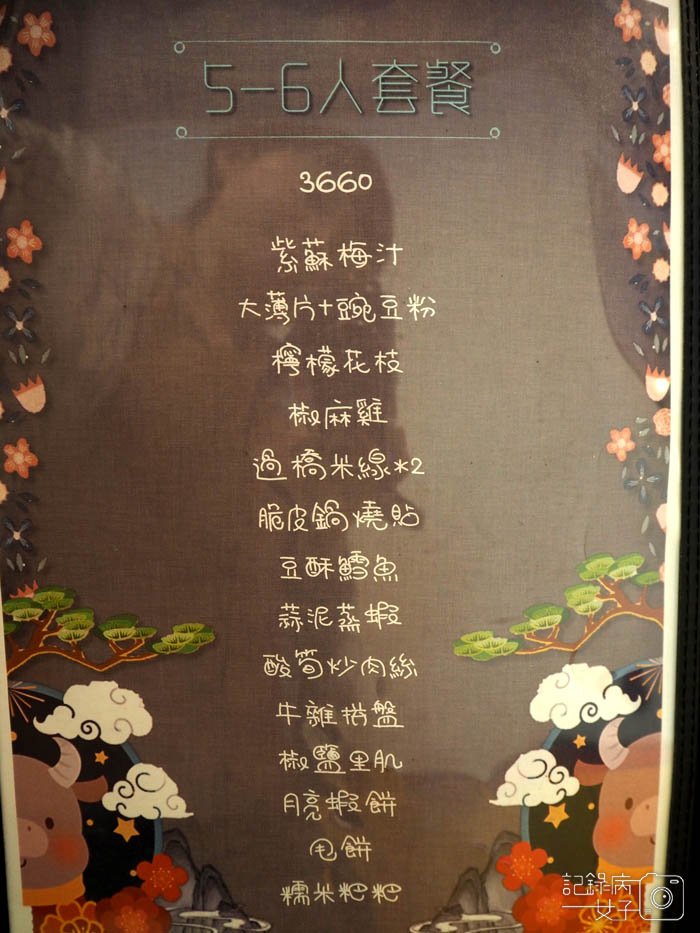 5-6人套餐
3660
紫蘇梅汁
大薄片+豌豆粉
檸檬花枝
椒麻雞
過橋米線*2
脆皮鍋燒貼
豆酥鱈魚
蒜泥蒸蝦
酸筍炒肉絲
牛雜拼盤
椒鹽里肌
月亮蝦餅
甩餅
糯米粑粑
記錄病
女子